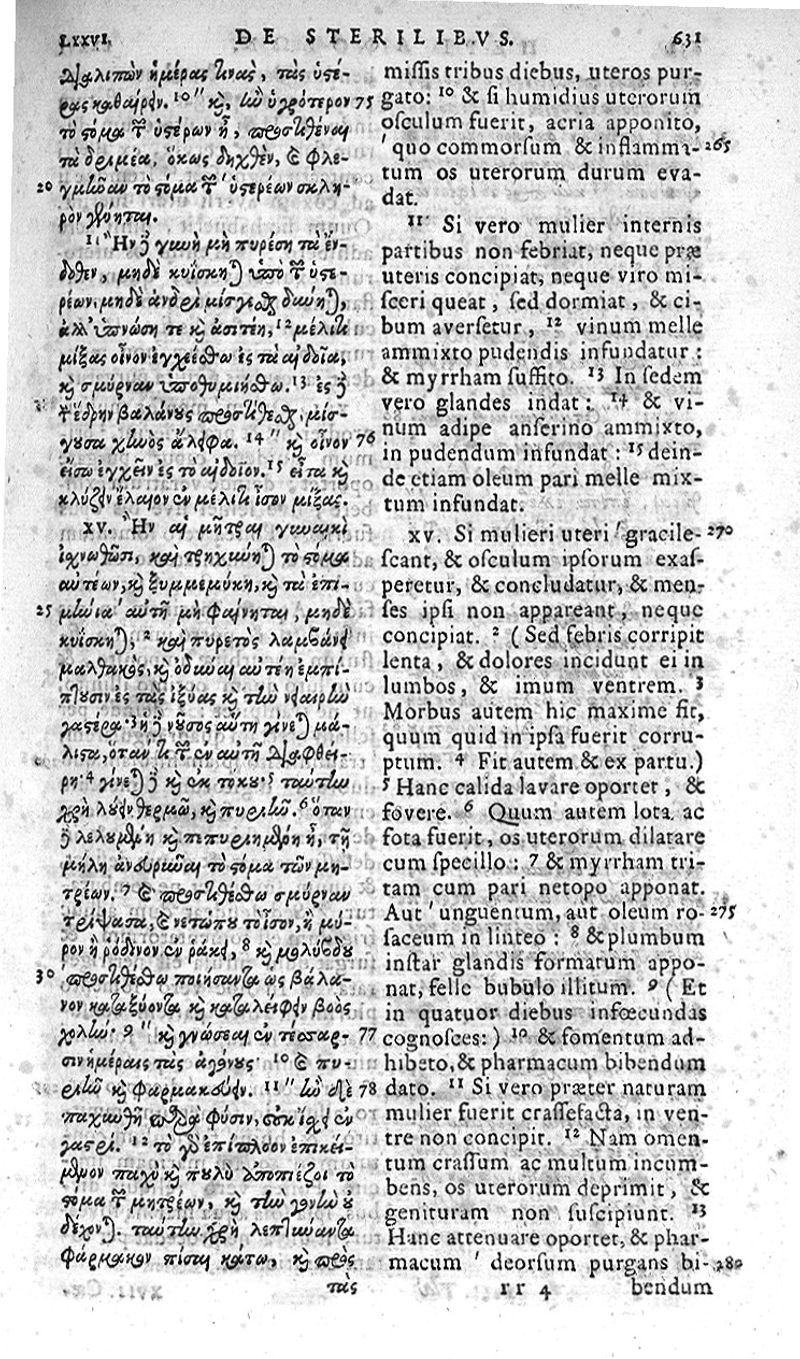 LXXVI. DE STERILIBVS. 631
διαλιπὼν ἡμέρας τινὰς, τὰς ὑστέ-
ρας καθαίρειν. 10 " καὶ, ἢν ὑγρότερον 75
τὸ στόμα τῶν ὑστέρων ᾖ, προστιθέναι
τὰ δριμέα, ὅκως δηχθὲν, καὶ φλε-
20 γμῆναν τὸ στόμα τῶν ὑστερέων σκλη-
ρὸν γένηται.
11 Ἢν δὲ γυνὴ μὴ πυρέσῃ τὰ ἔν-
δοθεν, μηδὲ κυΐσκηται ὑπὸ τῶν ὑστε-
ρέων, μηδὲ ἀνδρὶ μίσγεσθαι δύνηται,
ἀλλ' ὑπνώσῃ τε καὶ ἀσιτέῃ, 12 μέλιτι
μίξας οἶνον ἐγχείσθω ἐς τὰ αἰδοῖα,
καὶ σμύρναν ὑποθυμιήσθω. 13 ἐς δὲ
τὴν ἕδρην βαλάνους προστίθεσθαι, μίσ-
γουσα χηνὸς ἄλειφα. 14 " καὶ οἶνον 76
εἴσω ἐγχεῖν ἐς τὸ αἰδοῖον. 15 εἶτα καὶ
κλύζειν ἔλαιον ἐν μέλιτι ἴσον μίξας.
XV. Ἢν αἱ μῆτραι γυναικὶ
ἰσχνωθῶσι, καὶ τρηχύνηται τὸ στόμα
αὐτέων, καὶ ξυμμεμύκῃ, καὶ τὰ ἐπι-
25 μήνια ' αὐτῇ μὴ φαίνηται, μηδὲ
κυΐσκηται, 2 καὶ πυρετὸς λαμβάνει
μαλθακὸς, καὶ ὀδύναι αὐτέῃ ἐμπί-
πτουσιν ἐς τὰς ἰξύας καὶ τὴν νείαιραν
γαστέρα· 3 ἡ δὲ νοῦσος αὕτη γίνεται μά-
λιστα, ὅταν τι τῶν ἐν αὐτῇ διαφθεί-
ρῃ· 4 γίνεται δὲ καὶ ἐκ τόκου· 5 ταύτην
χρὴ λούειν θερμῷ, καὶ πυριῆν. 6 ὅταν
δὲ λελουμένη καὶ πεπυριημένη ᾖ, τῇ
μήλῃ ἀνευρῦναι τὸ στόμα τῶν μη-
τρέων. 7 καὶ προστιθέσθω σμύρναν
τρίψασα, καὶ νετώπου τὸ ἶσον, ἢ μύ-
ρον ἢ ῥόδινον ἐν ῥάκει, 8 καὶ μολύβδου
30 προστιθέσθω ποιήσαντα ὡς βάλα-
νον καταξύοντα καὶ καταλείφειν βοὸς
χολήν. 9 " καὶ γνώσεαι ἐν τέσσαρ- 77
σιν ἡμέραις τὰς ἀγόνους· 10 καὶ πυ-
ριῆν καὶ φαρμακεύειν. 11 " ἢν δὲ 78
παχυνθῇ παρὰ φύσιν, οὐκ ἴσχει ἐν
γαστρί. 12 τὸ γὰρ ἐπίπλοον ἐπικεί-
μενον παχὺ καὶ πουλὺ ἀποπιέζοι τὸ
στόμα τῶν μητρέων, καὶ τὴν γονὴν οὐ
δέχονται. ταύτην χρὴ λεπτύναντα
φάρμακον πῖσαι κάτω, καὶ πρὸς
τὰς
missis tribus diebus, uteros pur-
gato: 10 & si humidius uterorum
osculum fuerit, acria apponito,
' quo commorsum & inflamma- 265
tum os uterorum durum eva-
dat.
11 Si vero mulier internis
partibus non febriat, neque præ
uteris concipiat, neque viro mi-
sceri queat, sed dormiat, & ci-
bum aversetur, 12 vinum melle
ammixto pudendis infundatur:
& myrrham suffito. 13 In sedem
vero glandes indat: 14 & vi-
num adipe anserino ammixto,
in pudendum infundat: 15 dein-
de etiam oleum pari melle mix-
tum infundat.
XV. Si mulieri uteri ' gracile- 270
scant, & osculum ipsorum exas-
peretur, & concludatur, & men-
ses ipsi non appareant, neque
concipiat. 2 (Sed febris corripit
lenta, & dolores incidunt ei in
lumbos, & imum ventrem. 3
Morbus autem hic maxime fit,
quum quid in ipsa fuerit corru-
ptum. 4 Fit autem & ex partu.)
5 Hanc calida lavare oportet, &
fovere. 6 Quum autem lota ac
fota fuerit, os uterorum dilatare
cum specillo: 7 & myrrham tri-
tam cum pari netopo apponat.
Aut ' unguentum, aut oleum ro- 275
saceum in linteo: 8 & plumbum
instar glandis formatum appo-
nat, felle bubulo illitum. 9 (Et
in quatuor diebus infœcundas
cognosces:) 10 & fomentum ad-
hibeto, & pharmacum bibendum
dato. 11 Si vero præter naturam
mulier fuerit crassefacta, in ven-
tre non concipit. 12 Nam omen-
tum crassum ac multum incum-
bens, os uterorum deprimit, &
genituram non suscipiunt. 13
Hanc attenuare oportet, & phar-
macum ' deorsum purgans bi- 280
rr 4 bendum